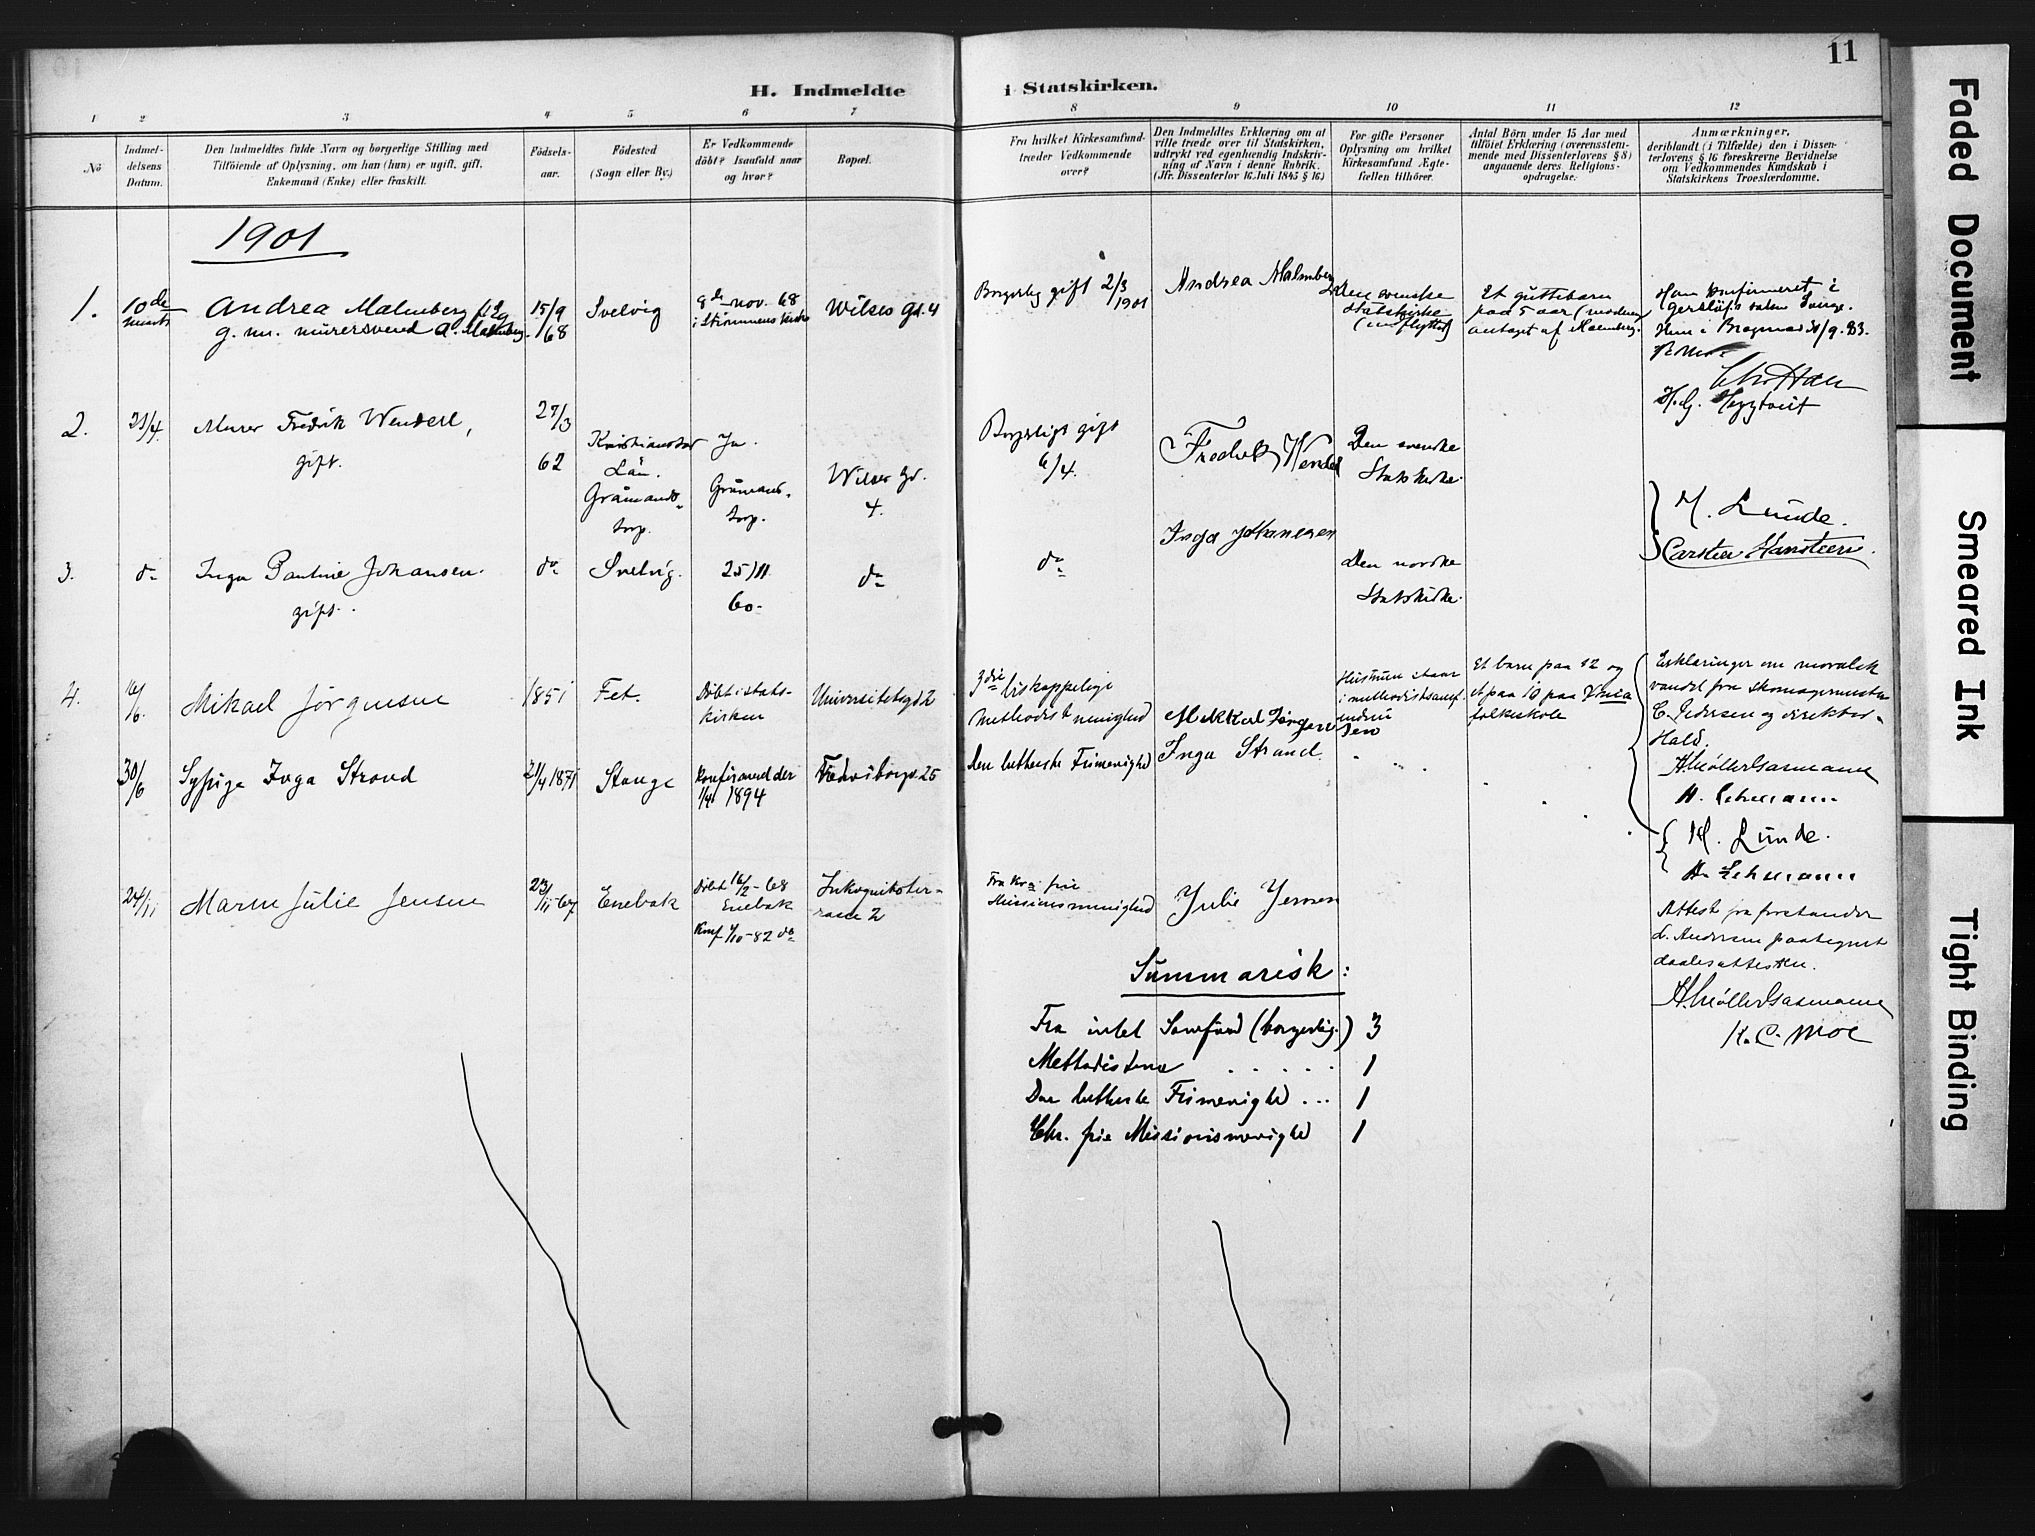 11
H. Indmeldte i Statskirken.
1 2 3 4 5 6 7 8 9 10 11 12
No
Indmel-
delsens
Datum.
Den Indmeldtes fulde Navn og borgerlige Stilling med
Tilföiende af Oplysning, om han (hun) er ugift, gift,
Enkemand (Enke) eller fraskilt.
Födsels-
aar.
Födested
(Sogn eller By.)
Er Vedkommende
döbt? Isaafald naar
og hvor?
Bopæl.
Fra hvilket Kirkesamfund
træder Vedkommende
over?
Den Indmeldtes Erklæring om at
ville træde over til Statskirken,
udtrykt ved egenhændig Indskriv-
ning af Navn i denne Rubrik.
(Jfr. Dissenterlov 16 Juli 1845 § 16)
For gifte Personer
Oplysning om hvilket
Kirkesamfund Ægte-
fællen tilhörer.
Antal Börn under 15 Aar med
tilföiet Erklæring (overensstem-
mende med Dissenterlovens § 8)
angaaende deres Religions-
opdragelse.
Anmærkninger,
deriblandt (i Tilfælde) den i Dissen-
terlovens § 16 foreskrevne Bevidnelse
om Vedkommendes Kundskab i
Statskirkens Troeslærdomme.
1901
1.
10de
Andrea Malmberg
g. m. murersvend A. Malmberg.
15/9
/68
Svelvig
8de nov. 68
i Strömmens kirke
Wilses gd. 4
Borgerlig gift 2/3
1901
Andrea Malmberg
Den svenske
Statskirke
(indflyttet)
Et guttebarn
paa 5 aar (moderen
antaget af Malmberg.
Han konfirmeret i
Hun i Bragernes /9. 83.
Chr Hall
H. G. Heggtveit
2.
21/4.
Murer Fredrik Wendell,
gift.
27/3
62
Kristianstad
Län.
Gråmands-
torp.
Ja.
Gråmans-
torp.
Wilses Gd.
4.
Borgerligt gift
6/4.
Fredrik Wendel
Den svenske
Statskirke.
M. Lunde.
Carsten Hansteen.
3.
do
Inga Pauline Johansen.
gift.
do
Svelvig.
25/11
60.
do
do
Inga Johansen
Den norske
Statskirke.
4.
16/6.
Mikael Jörgensen
1851
Fet.
Döbt i stats-
kirken
Universitetsgd 2
biskoppelige
methodistmenighed
Mikkal Jörgensen
Hustruen staar
i methodistsamf.
endnu
Et barn paa 12 og
et paa 10 paa
folkeskole
Erklæringer om moralsk
vandel fra skomagermester
C. Pedersen og direktör
Hald.
A Möller Gasmann
H. Lehmann
30/6
Sypige Inga Strand
21/4 1871
Stange
Konfirmeret der
1894
Fredensborgv. 25
Den lutherske Frimenighed
Inga Strand
M. Lunde.
H. Lehmann
24/11
Maren Julie Jensen
23/11-67
Enebak
Döbt 16/2-68
Enebak
Konf /10-82 do
Inkognitoter-
rasse 2
Fra Kra. frie
Missionsmenighed
Julie Jensen
Attest fra forstander
L. Andersen paategnet
daabsattesten.
A Möller Gasmann
K. C. Moe
Summarisk:
Fra intet Samfund (borgerlig.) 3
Methodisterne . . . . . 1
Den lutherske Frimenighed ... 1
Chr. frie Missionsmenighed 1
Faded Document
Smeared Ink
Tight Binding